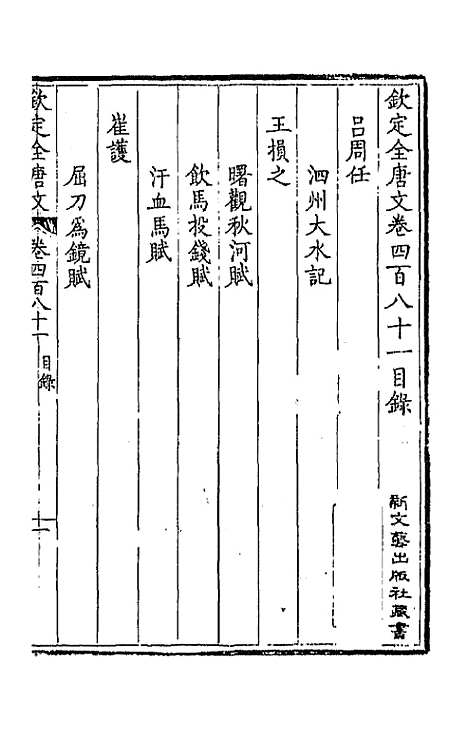 欽定全唐文卷四百八十一目錄
新文藝出版社藏書
呂周任
泗州大水記
王損之
曙觀秋河賦
飲馬投錢賦
汗血馬賦
崔護
屈刀為鏡賦
欽定全唐文 卷四百八十一 目錄